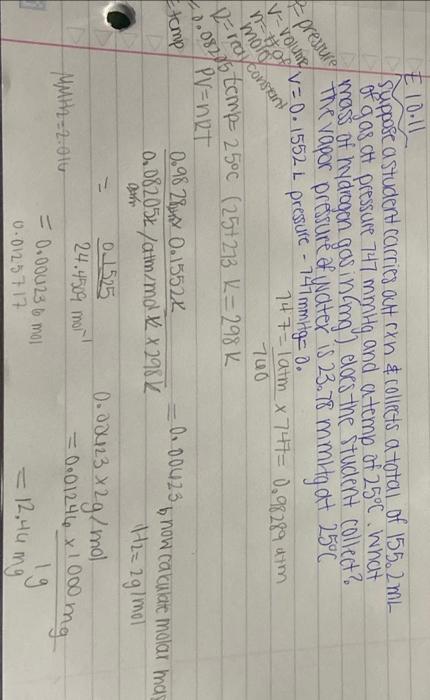 E 10.11
Suppose a student carries out rxn & collects a total of 155.2 mL
of gas at pressure 747 mmHg and a temp of 25°C. What
mass of hydrogen gas in (mg) does the student collect?
The vapor pressure of water is 23.78 mmHg at 25°C
V = 0.1552 L pressure - 747 mmHg = 0.
747 = 1 atm × 747 = 0.98289 atm
760
temp = 25°C (25+273 K = 298 K
pressure
V = volume
n = # of
mols
R = real constant
= 0.08205
= temp
PV = nRT
0.9828 atm × 0.1552 L = 0.00623, now calculate molar mas
0.08205 L/atm/mol K × 298 K
1H2 = 2g/mol
= 0.1525
24.4509 mol⁻¹
0.00623 × 2g/mol
= 0.01246 × 1000 mg
1g
= 12.46 mg
MMH2 = 2.016
= 0.006236 mol
0.0125717